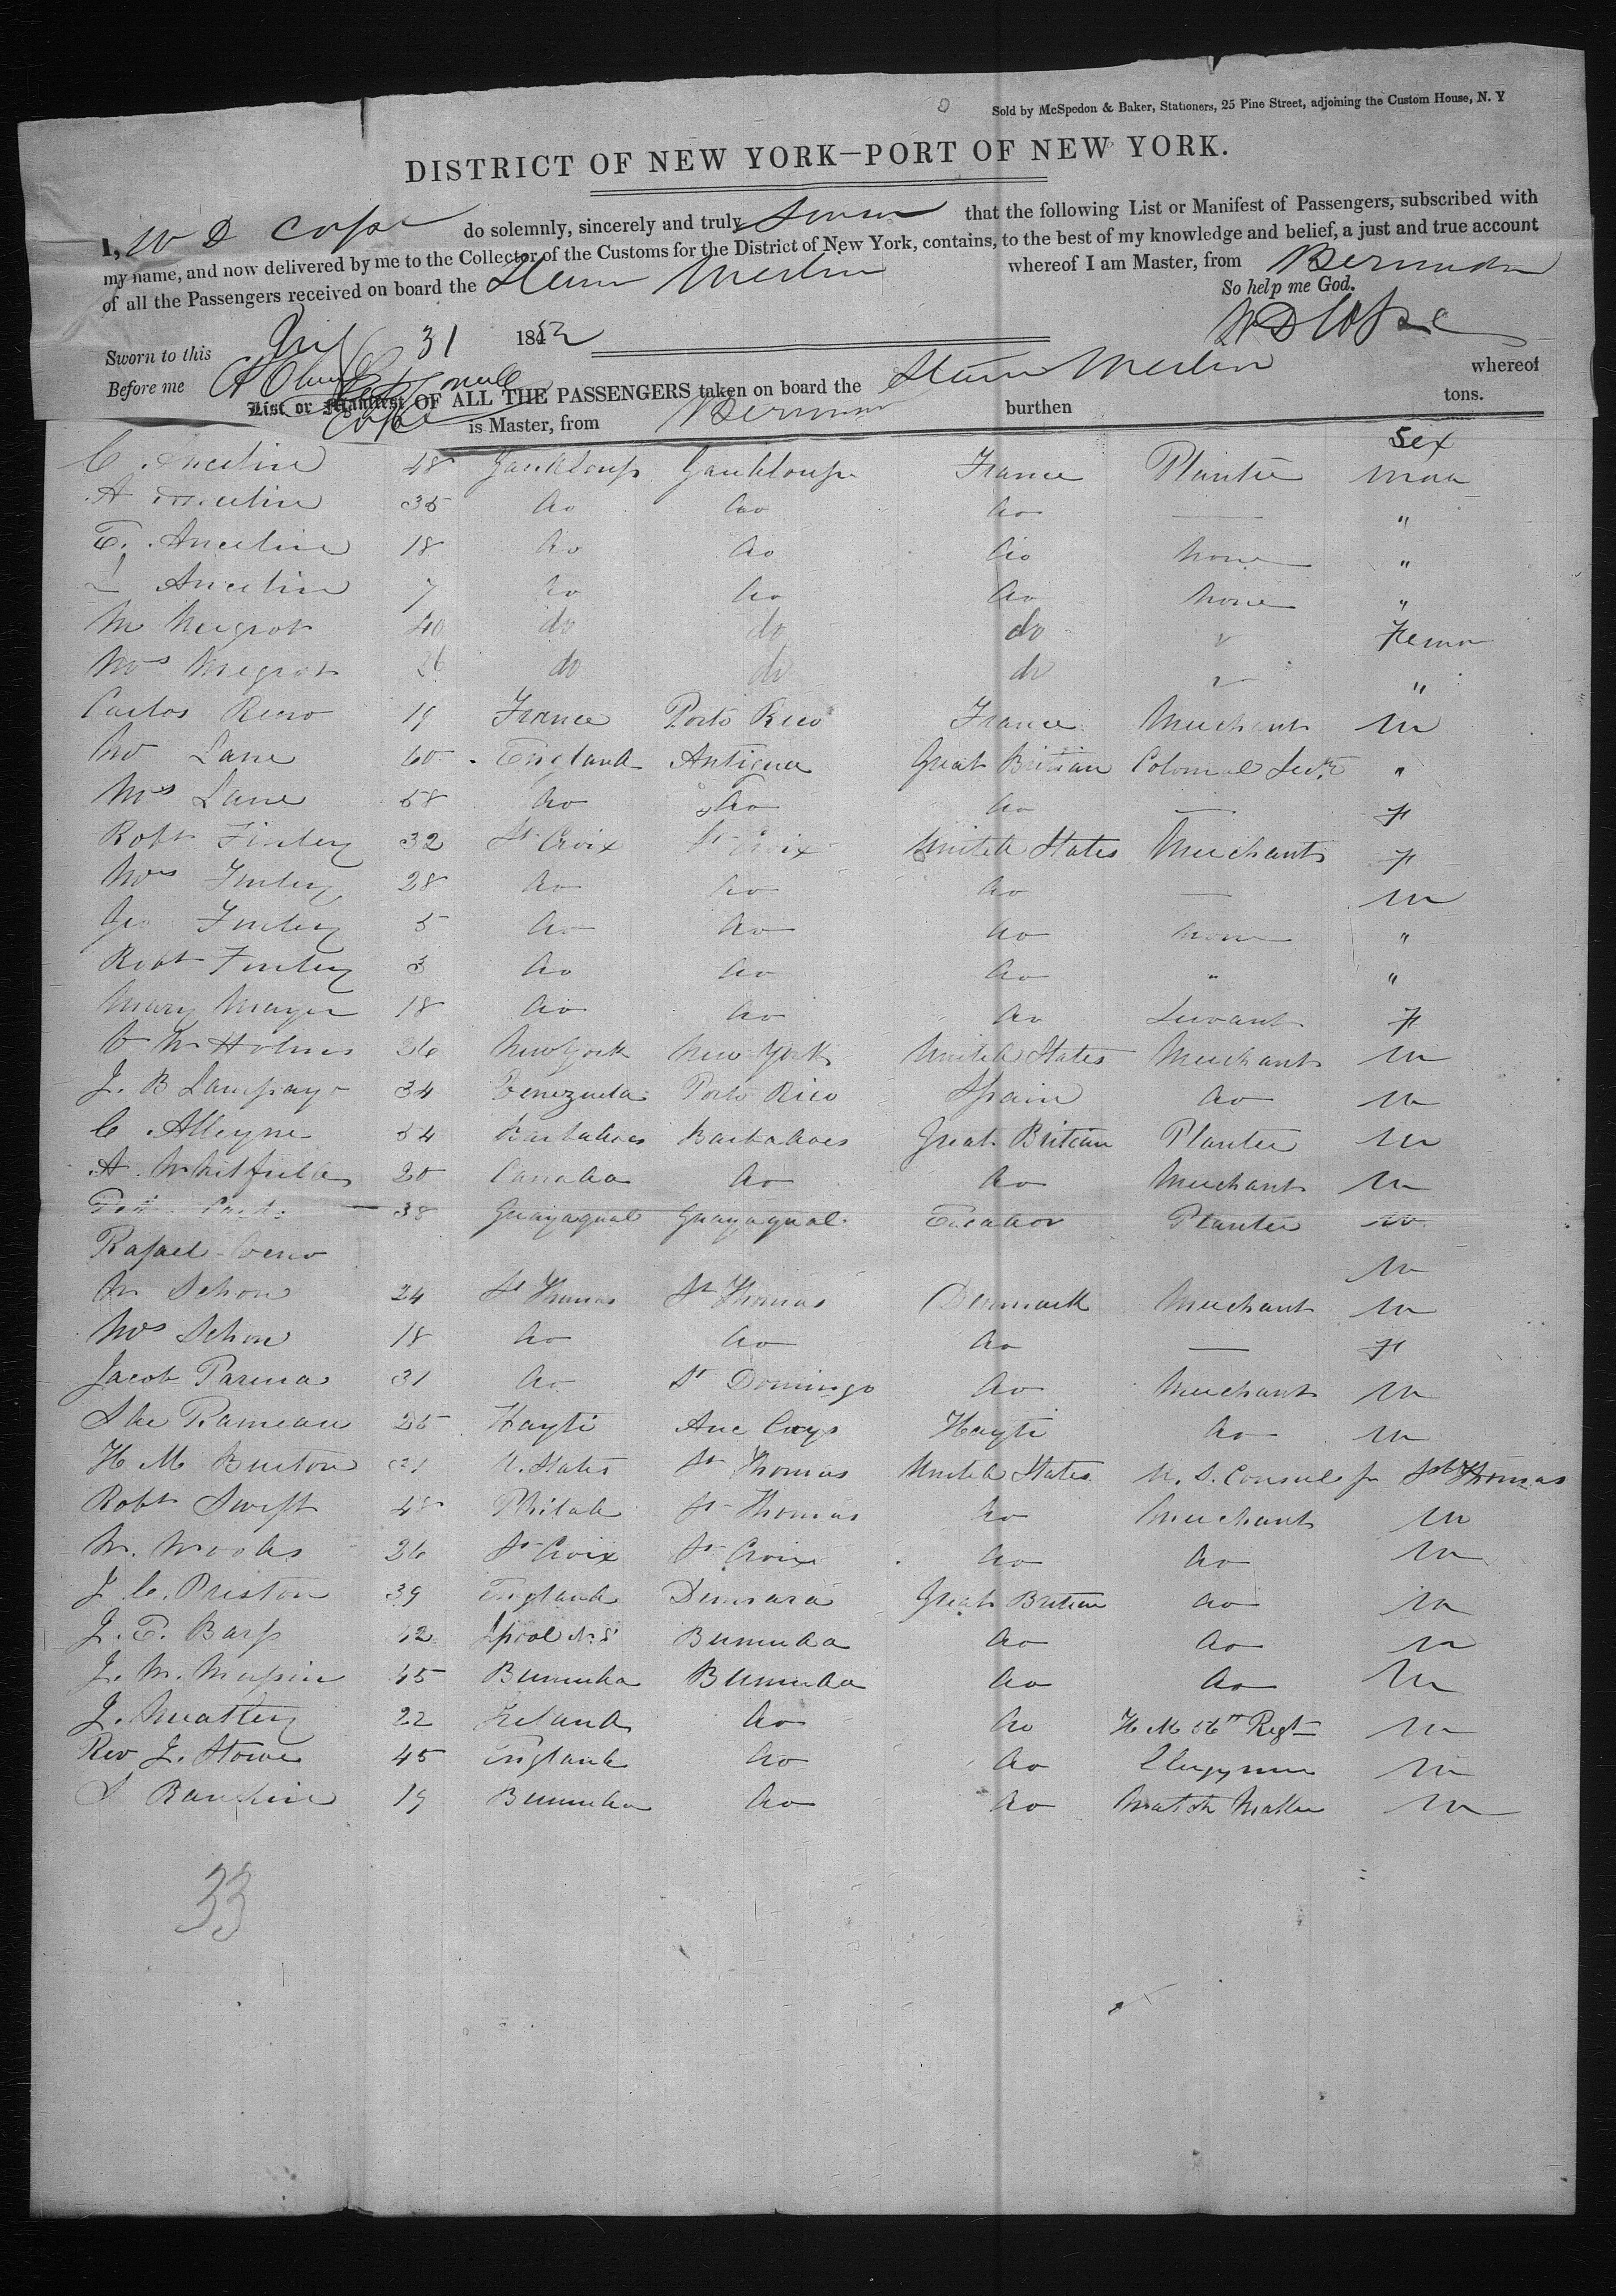 Sold by McSpedon & Baker, Stationers, 25 Pine Street, adjoining the Custom House, N. Y
DISTRICT OF NEW YORK—PORT OF NEW YORK.
I, W D Cope do solemnly, sincerely and truly swear that the following List or Manifest of Passengers, subscribed with
my name, and now delivered by me to the Collector of the Customs for the District of New York, contains, to the best of my knowledge and belief, a just and true account
of all the Passengers received on board the Steamer Merlin whereof I am Master, from Bermuda
So help me God.
Sworn to this 31 1852 W D Cope
Before me
List or Manifest OF ALL THE PASSENGERS taken on board the Steamer Merlin whereof
Cope is Master, from Bermuda burthen tons.
Sex
C Ancelin 48 France Planter
A 35 do do do — "
E. Ancelin 18 do do do none "
L Ancelin 7 do do do none "
M Negrot 40 do do do
Mrs Negrot 26 do do do "
Carlos 19 France Porto Rico France Merchant M
Mr Lane 60 England Antigua Great Britian Colonial Secr "
Mrs Lane 58 do do do — F
Robt Finley 32 St Croix St Croix United States Merchant F
Mrs Finley 28 do do do — M
Geo Finley 5 do do do none "
Robt Finley 3 do do do " "
Mary Mayer 18 do do do Servant F
W Holmes 26 New York New York United States Merchant M
J. B 34 Venezuela Porto Rico Spain do M
C Alleyne 54 Barbadoes Barbadoes Great Britian Planter M
A Whitfield 20 Canada do do Merchant M
38 Guayaqual Guayaqual Ecuador Planter M
Rafael M
Mr Schon 24 St Thomas St Thomas Denmark Merchant M
Mrs Schon 18 do do do — F
Jacob 31 do St Domingo do Merchant M
Rameau 25 Hayti Aux Cays Hayti do M
H M Burton U. States St Thomas United States U. S. Consul for St Thomas
Robt Swift 48 Philad St Thomas do Merchant M
W. Woods 26 St Croix St Croix do do M
J. C. Preston 39 England Demerara Great Britian do M
J. T. 42 Bermuda do do M
J. W. 45 Bermuda Bermuda do do M
J. 22 Ireland do do H M 56th Regt M
Rev J. Stowe 45 England do do Clergyman M
S 19 Bermuda do do Watch Maker M
33